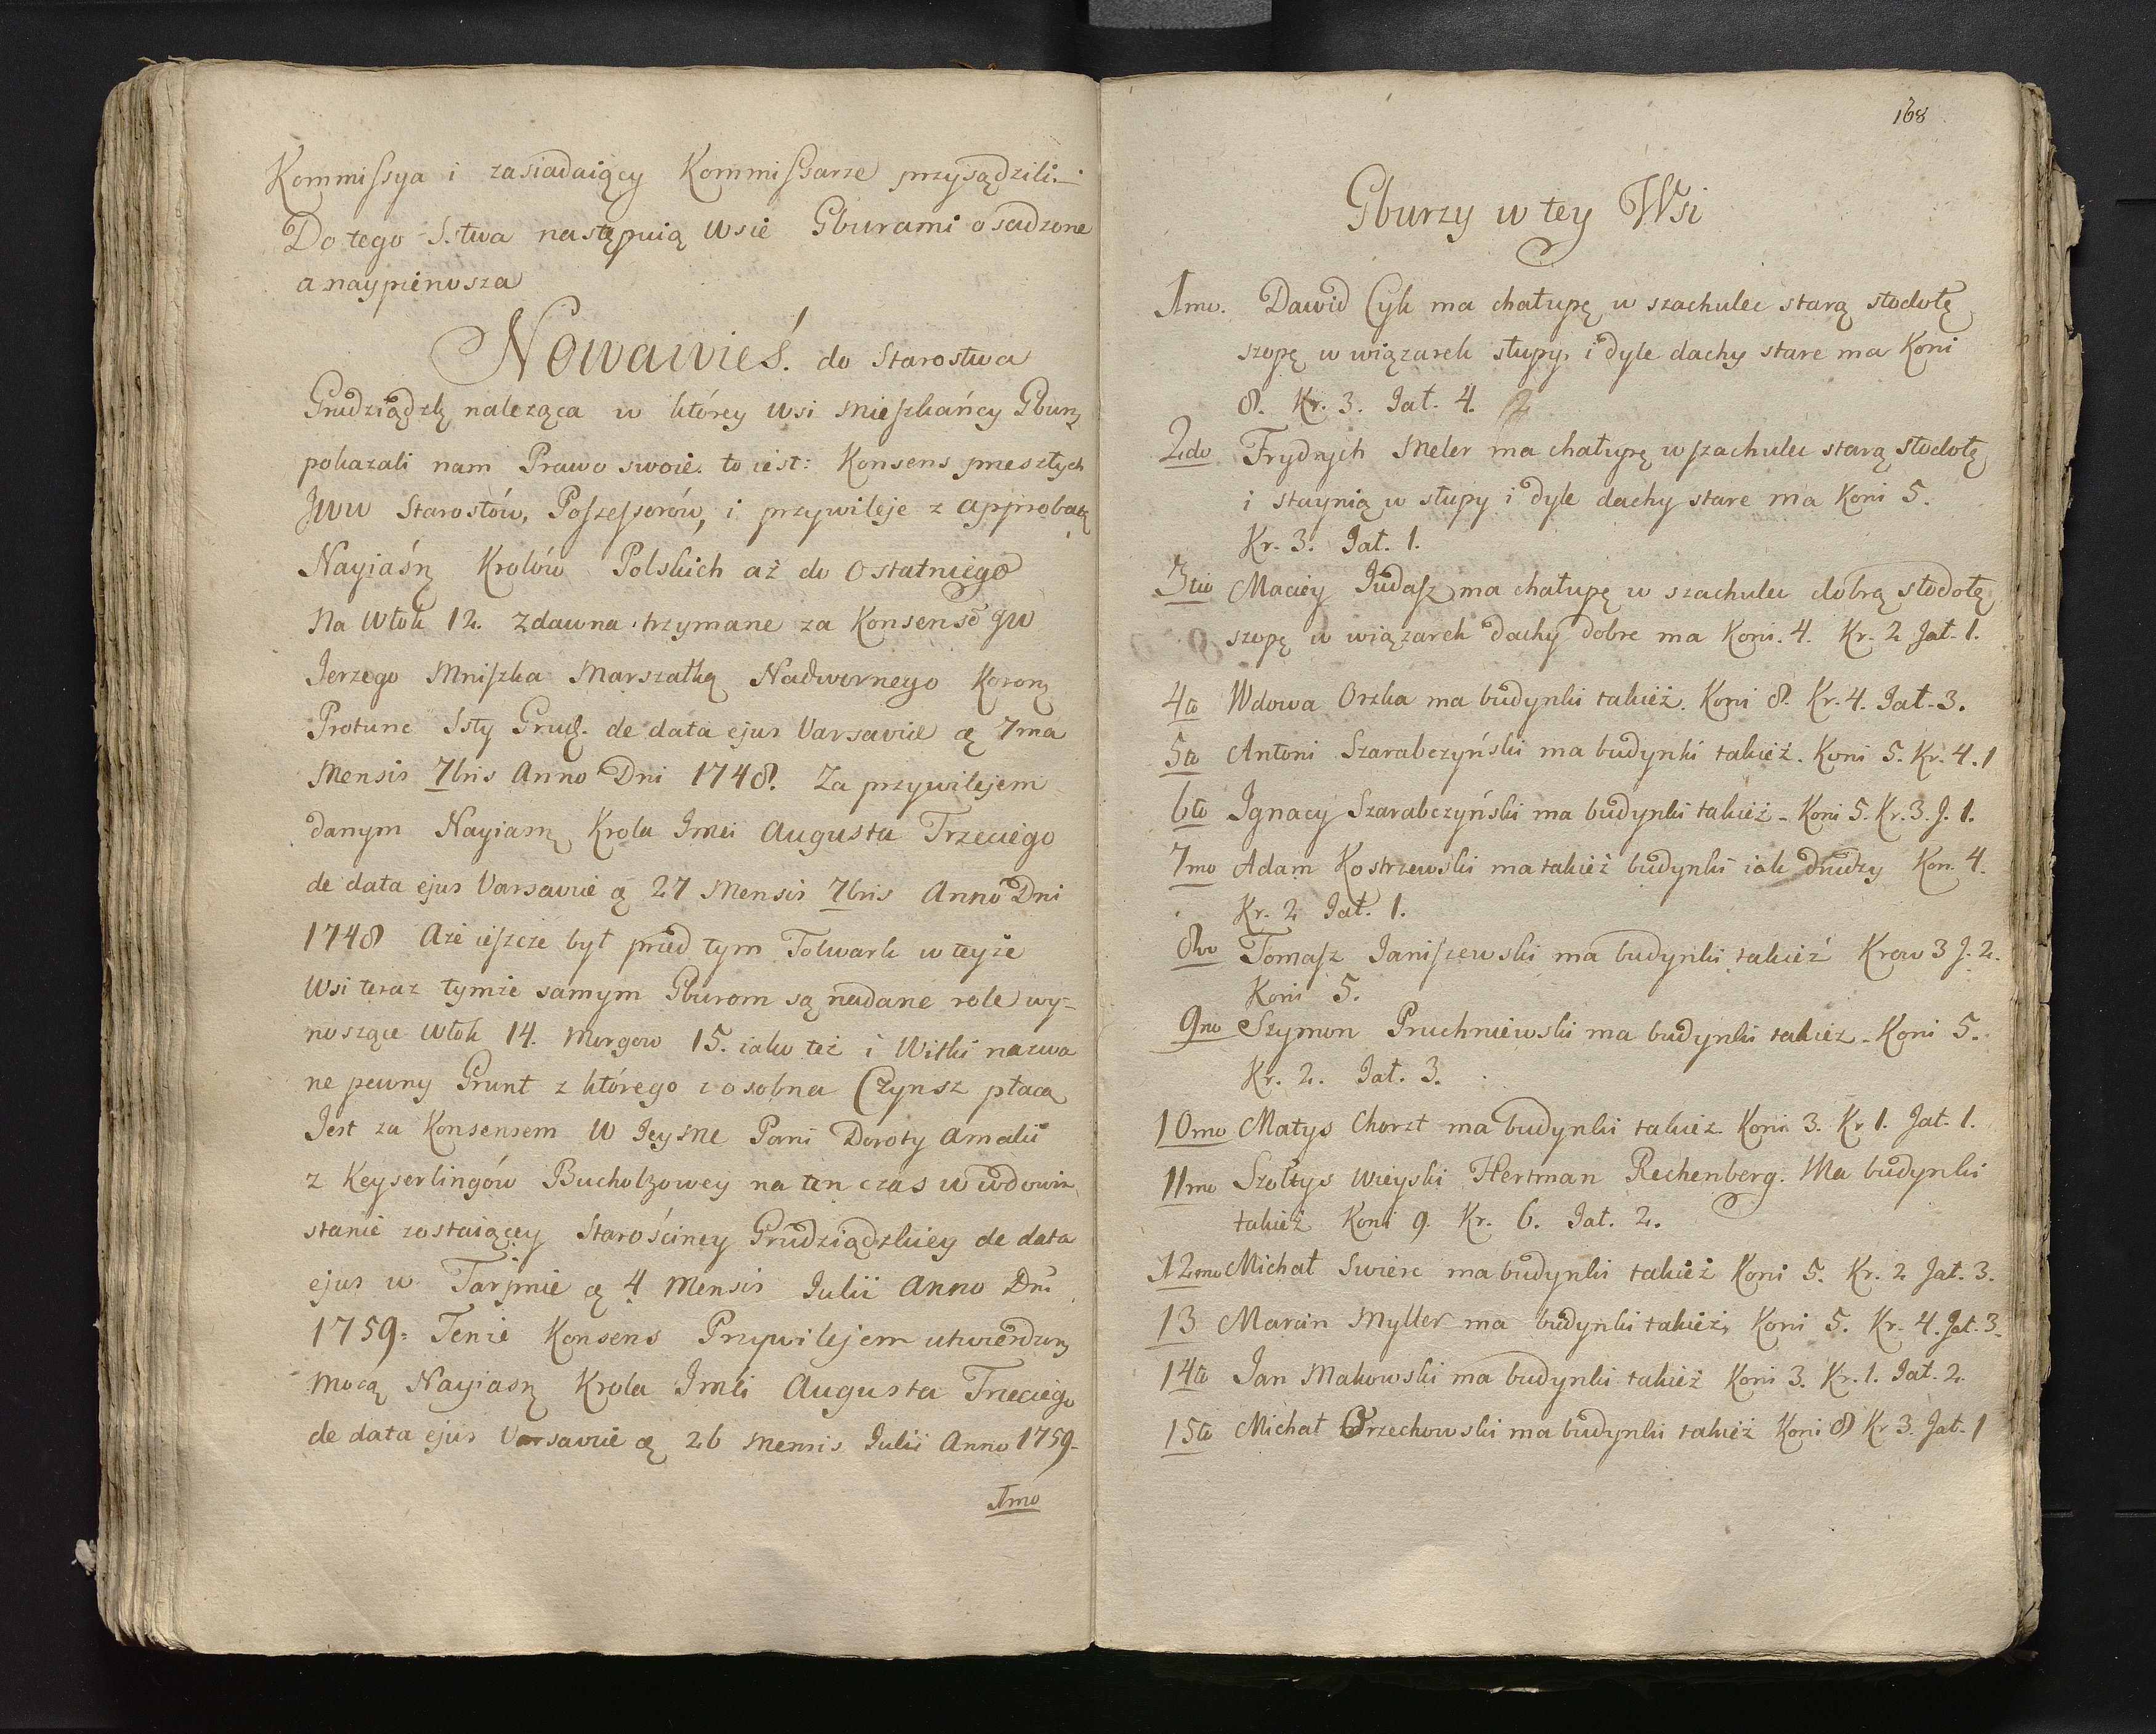 Kommissya i zasiadaiący Kommissarze przysądzili.
Do tego S.stwa następuią Wsie Gburami osadzone
a naypierwsza
Nowawieś. do Starostwa
Grudziądzk̨ należąca w którey Wsi Mieszkańcy Gburz̨
pokazali nam Prawo swoie. to iest: Konsens przeszłych
Jww Starostów, Possessorów, i przywileje z approbacą
Nayiaśn̨ Krolów Polskich aż do Ostatniego
Na Włok 12. Zdawna trzymane za Konsensē JW
Jerzego Mniszka Marszałka Nadwornego Koronn̨
Protunc Ssty Grudz. de data ejus Varsavie ą 7ma
Mensis 7bris Anno Dni 1748. Za przywilejem
danym Nayiasn̨ Krola Jmci Augusta Trzeciego
de data ejus Varsavie ą 27 Mensis 7bris Anno Dni
1748 Aże ieszcze był przed tym Folwark w teyże
Wsi teraz tymże samym Gburom są nadane role wy-
noszące Włok 14. Morgow 15. iako też i Witki nazwa
ne pewny Grunt z którego z osobna Czynsz płacą
Jest za Konsensem W Jeysne Pani Doroty Amalii
z Keyserlingów Bucholzowey na ten czas w wdowim
stanie zostaiącey Starościney Grudziądzkiey de data
ejus w Tarpnie ą 4 Mensis Julii Anno Dni
1759. Tenże Konsens Przywilejem utwierdzon̨
mocą Nayiasn̨ Krola Jmci Augusta Trzeciego
de data ejus Varsavie ą 26 Mensis Julii Anno 1759.
1mo
168
Gburzy w tey Wsi
1mo. Dawid Cyk ma chałupę w szachulec starą stodołę
szopę w wiązarek słupy i dyle dachy stare ma Koni
8. Kr. 3. Jał. 4.
2do Frydrych Meler ma chałupę w szachulec starą stodołę
i staynią w słupy i dyle dachy stare ma Koni 5.
Kr. 3. Jał. 1.
3tio Maciey Judasz ma chałupę w szachulec dobrą stodołę
szopę w wiązarek dachy dobre ma Koni. 4. Kr. 2 Jał. 1.
4to Wdowa Orzka ma budynki takież. Koni 8. Kr. 4. Jał. 3.
5to Antoni Szarabczyński ma budynki takież. Koni 5. Kr. 4. 1
6to Ignacy Szarabczyński ma budynki takież. Koni 5. Kr. 3. J. 1.
7mo Adam Kostrzewski ma takież budynki iak drudzy Kon. 4.
Kr. 2 Jał. 1.
8vo Tomasz Janiszewski ma budynki takież Krow 3 J. 2.
Koni 5.
9no Szymon Pruchniewski ma budynki takież. Koni 5.
Kr. 2. Jał. 3.
10mo Matys Chorzt ma budynki takież. Koni 3. Kr 1. Jał. 1.
11mo Szołtys Wieyski Hertman Rechenberg. Ma budynki
takież Koni 9. Kr. 6. Jał. 2.
12mo Michał Swierc ma budynki takież Koni 5. Kr. 2 Jał. 3.
13 Marcin Myller ma budynki takież, Koni 5. Kr. 4. Jał. 3.
14to Jan Makowski ma budynki takież Koni 3. Kr. 1. Jał. 2.
15to Michał Orzechowski ma budynki takież Koni 8 Kr 3. Jał. 1